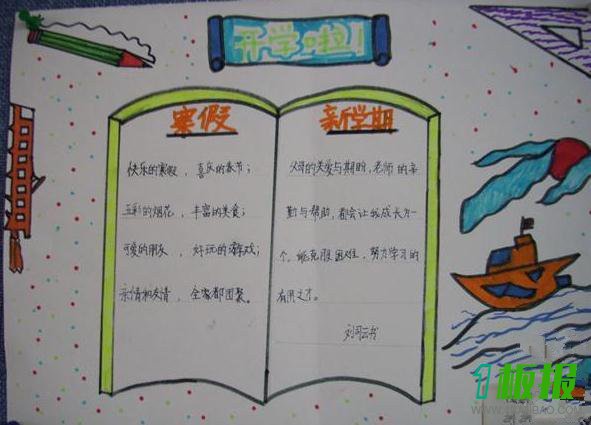 开学啦!
寒假
快乐的寒假，喜庆的春节；
五彩的烟花，丰富的美食；
可爱的朋友，好玩的游戏；
亲情和友情，全家都团聚。
新学期
父母的关爱与期盼，老师的辛
勤与帮助，都会让我成长为一
个，能克服困难，努力学习的
有用之才。
板报